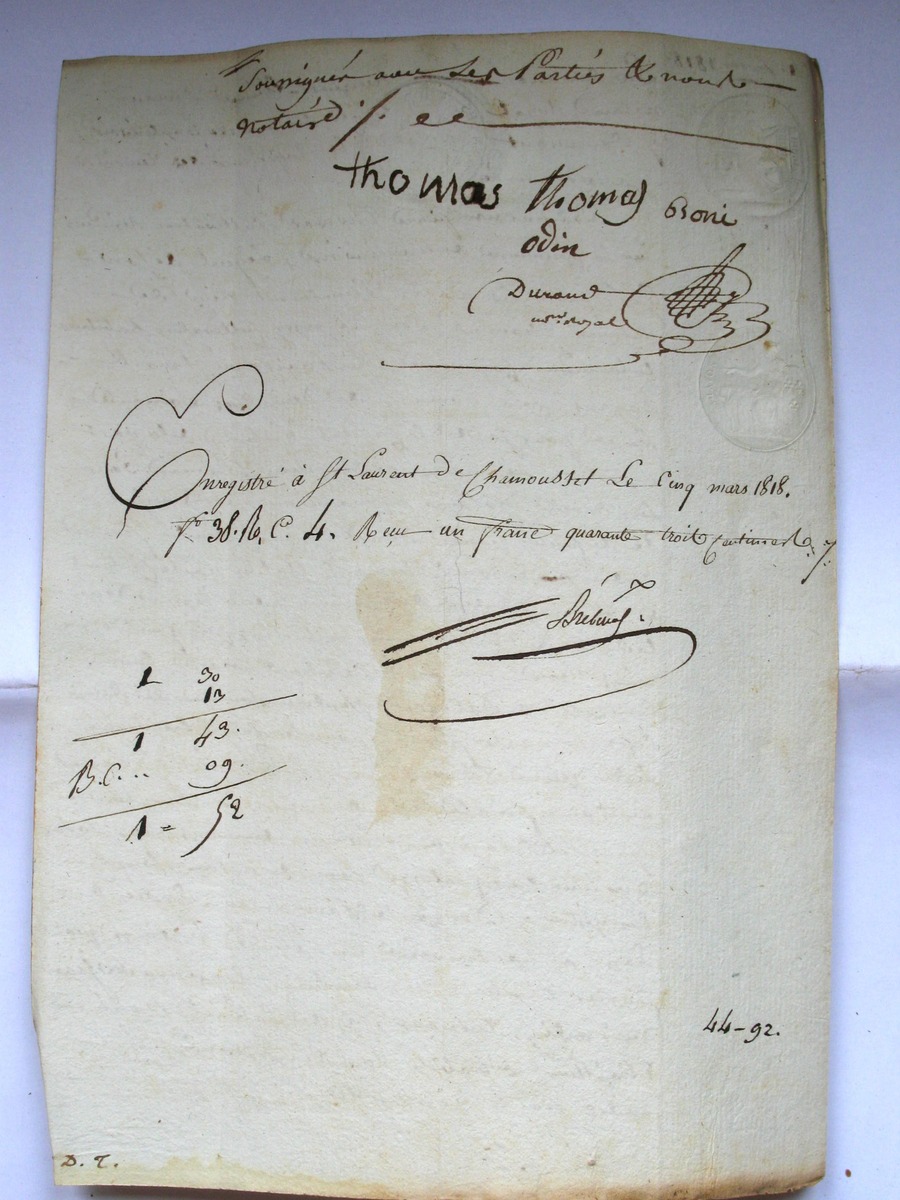 Soussignés avec Les Parties & nous
notaire ./. ee
thomas thomas Boni
odin
Durand
Enregistré à St Laurent de Chamousset Le Cinq mars 1818.
fo 38. Ro. C. 4. Reçu un franc quarante trois Centimes
1 30
13
1 43.
B.C... 09.
1 = 52
44-92.
D. T.